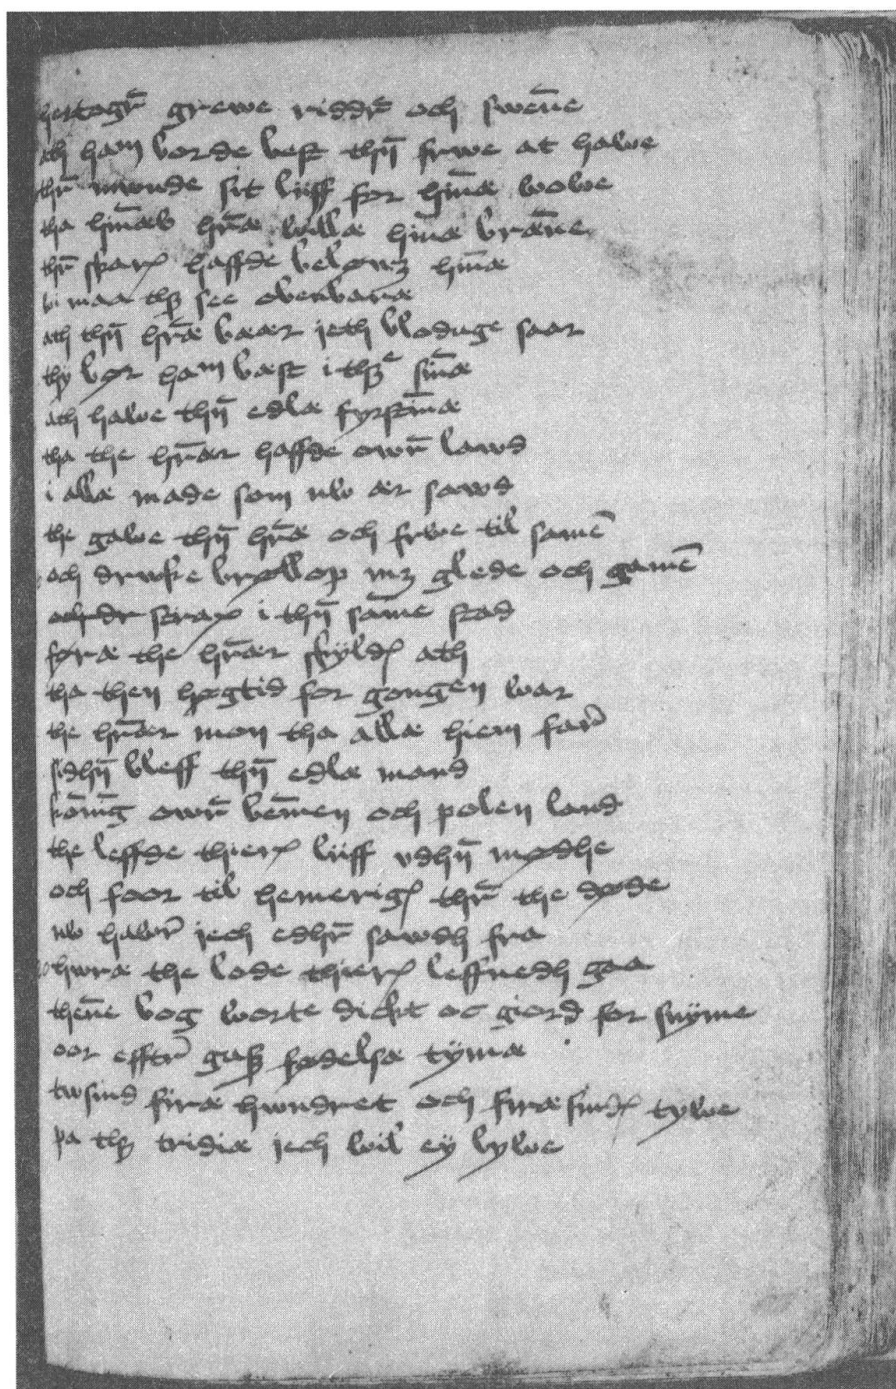 hertogr̄ grewe riddr̄ och swen̄e
ath ham borde best thn̄ frwe at hawe
thr̄ mwnde sit liiff for hin̄æ wowe
tha hin̄æs hr̄ræ willæ hin̄æ bræn̄e
thr̄ haffde beløwʒ hin̄æ
wi maa thʒ see obenbaræ
ath thn̄ hr̄ræ bæær ieth bloduge saar
thy bør ham bæst i thʒe sin̄æ
ath hawe thn̄ edlæ fyrstin̄æ
tha the hr̄rær haffde owr̄ lawd
i allæ made som nw ær sawd
the gawe thn̄ hr̄ræ och frwe til samen̄
och drwke brøllop mʒ glede och gamen̄
och dr strax i thn̄ sam̄e stad
føræ the hr̄rær skyldꝭ ath
tha then høgtid for gongen war
the hr̄rær mon tha allæ hiem far̄
sidhn̄ bleff thn̄ edlæ mand
kōnīg owr̄ bem̄en och polen land
the leffde thierꝭ liiff vdhn̄ mødhe
och foor til hemerigꝭ thr̄ the døde
nw hawr̄ iech edhr̄ sawdh fra
hwræ the lode thierꝭ leffnedh gaa
then̄e bog worte dickt oc giord for snyme
oor efftr̄ gutʒ fødelsæ tymæ
twsind firæ hwndret och firæ sindꝭ tywe
pa thʒ tridiæ iech wil ey lywe